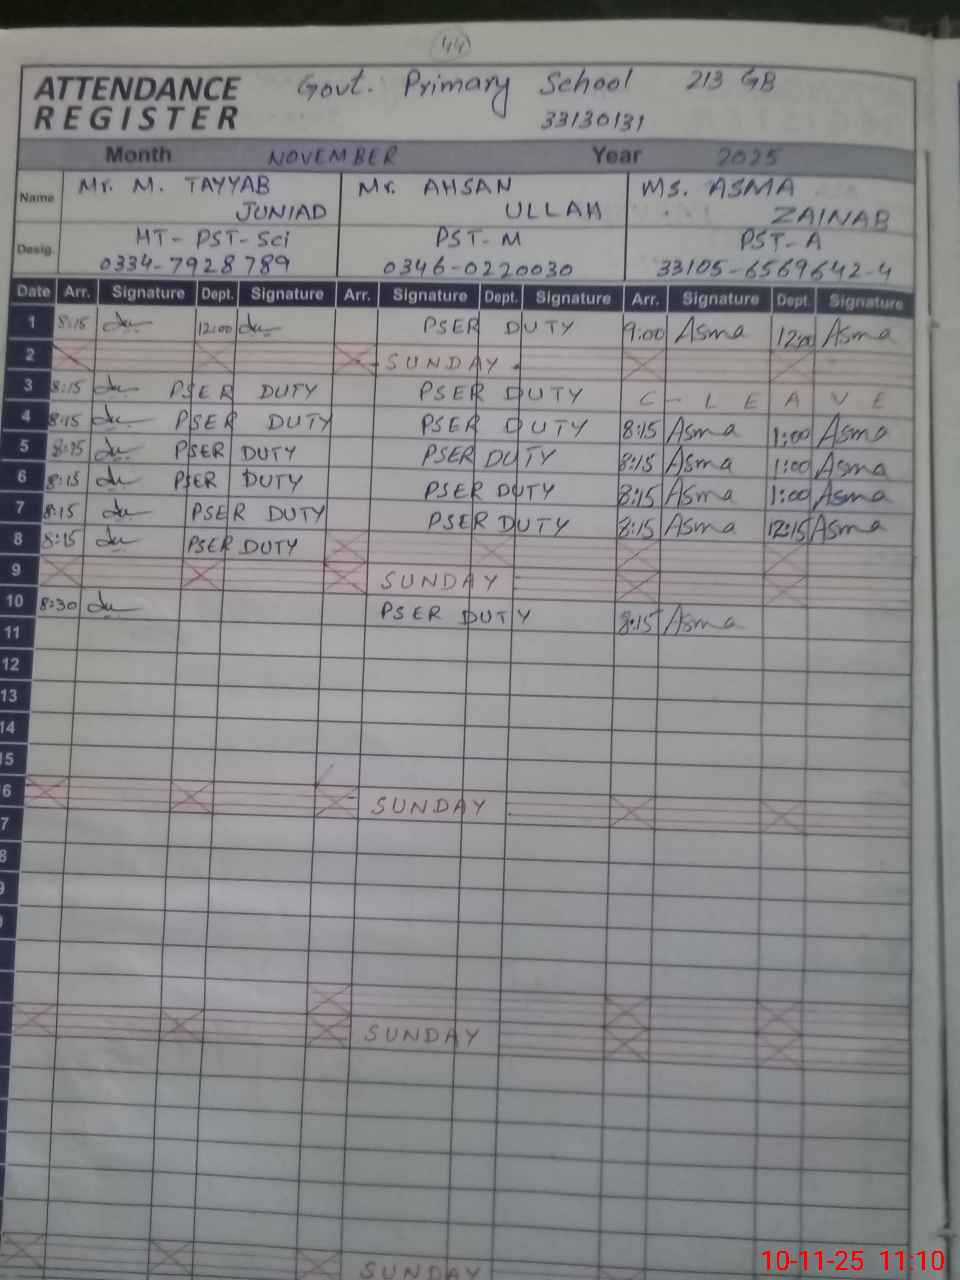 44
ATTENDANCE REGISTER Govt. Primary School 213 GB
33130131
Month NOVEMBER Year 2025
Name Mr. M. TAYYAB JUNIAD Mr. AHSAN ULLAH Ms. ASMA ZAINAB
Desig. HT-PST-Sci PST-M PST-A
0334-7928789 0346-0220030 33105-6569642-4
Date Arr. Signature Dept. Signature Arr. Signature Dept. Signature Arr. Signature Dept. Signature
1 8:15 12:00 PSER DUTY 9:00 Asma 12:00 Asma
2 SUNDAY
3 8:15 PSER DUTY PSER DUTY C-LEAVE
4 8:15 PSER DUTY PSER DUTY 8:15 Asma 1:00 Asma
5 8:15 PSER DUTY PSER DUTY 8:15 Asma 1:00 Asma
6 8:15 PSER DUTY PSER DUTY 8:15 Asma 1:00 Asma
7 8:15 PSER DUTY PSER DUTY 8:15 Asma 12:15 Asma
8 8:15 PSER DUTY
9 SUNDAY
10 8:30 PSER DUTY 8:15 Asma
11
12
13
14
15
6 SUNDAY
7
8
9
SUNDAY
SUNDAY
10-11-25 11:10